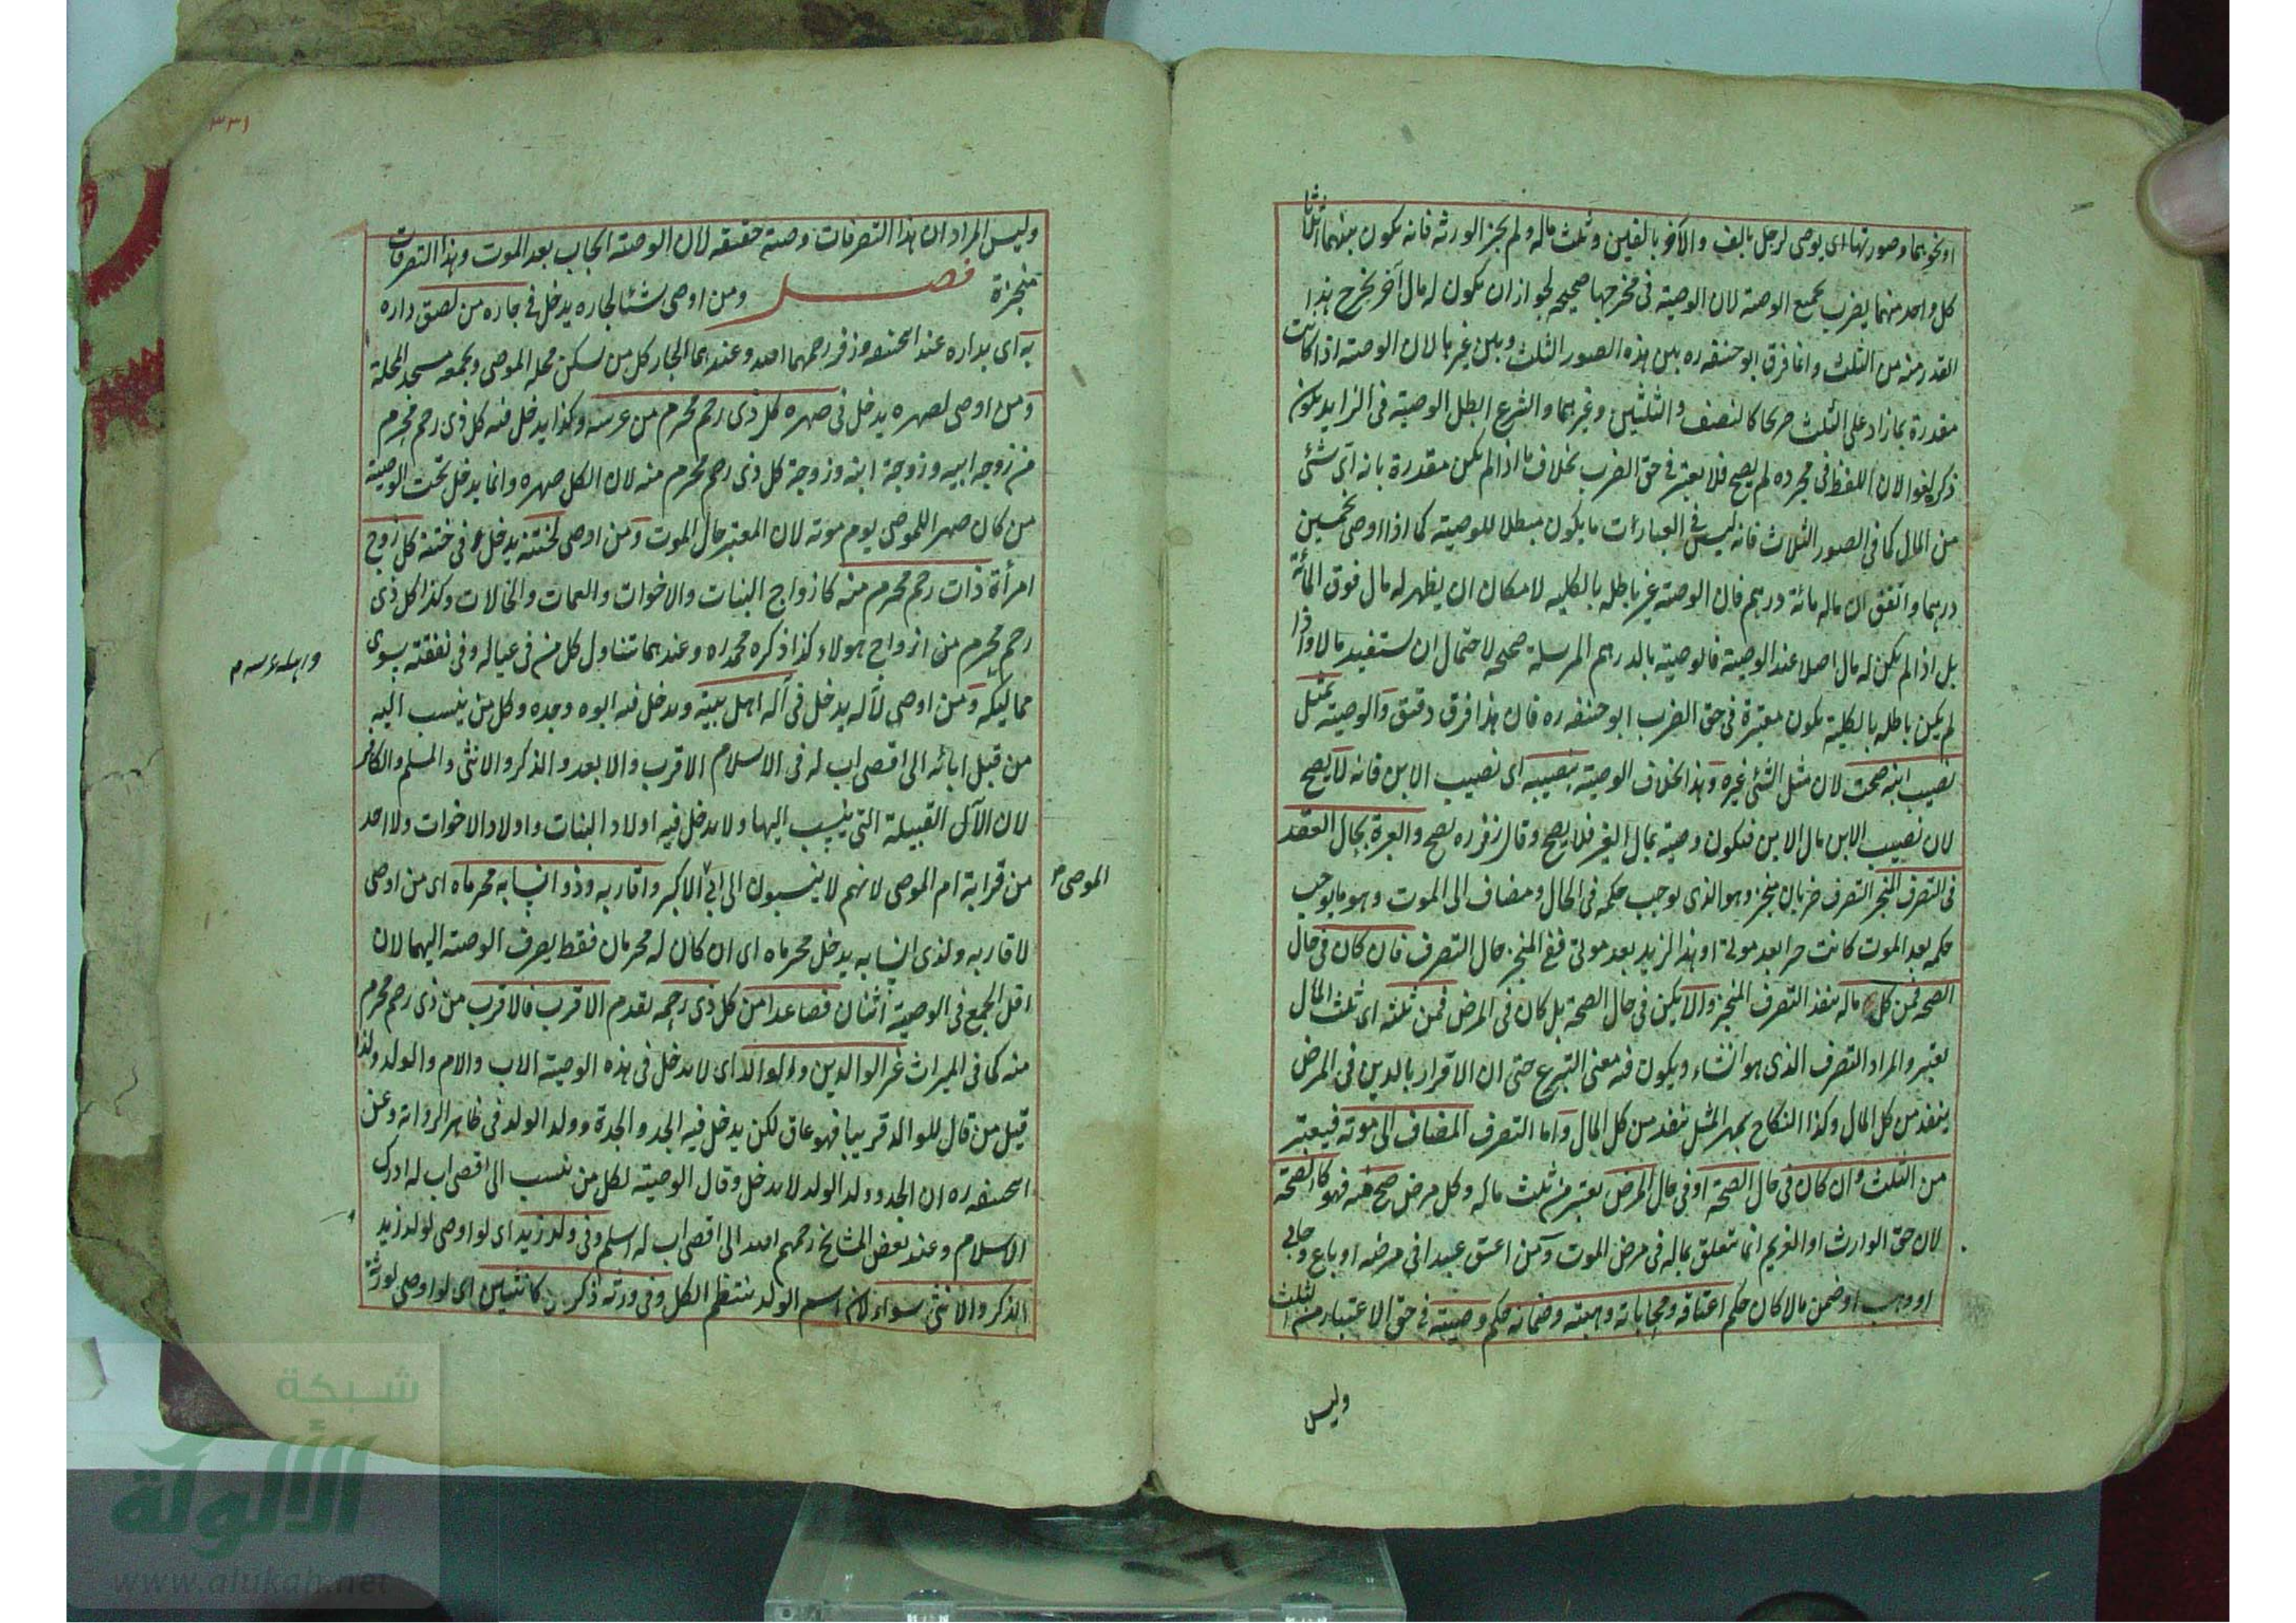 او نحوهما وصورتها ان يوصى لرجل بالف والآخر بالفين وثلث ماله ولم يجز الورثة فانه يكون بينهما اثلاثا
كل واحد منهما يضرب بجميع الوصية لان الوصية فى مخرجها صحيحه لجواز ان يكون له مال آخر يخرج هذا
القدر منه من الثلث وانما فرق ابو حنيفه ره بين هذه الصور الثلث وبين غيرها لان الوصية اذا كانت
مقدرة بما زاد على الثلث صريحا كالنصف والثلثين وغيرهما والشرع ابطل الوصية فى الزايد يكون
ذكره لغوا لان اللفظ فى مجرده لم يصح فلا يعتبر فى حق الضرب بخلاف ما اذا لم يكن مقدرة بانه اى شئ
من المال كما فى الصور الثلاث فانه ليس فى العبارات ما يكون مبطلا للوصية كما اذا اوصى بخمسين
درهما واتفق ان ماله مائة درهم فان الوصية غير باطله بالكليه لامكان ان يظهر له مال فوق المائة
بل اذا لم يكن له مال اصلا عند الوصية فالوصية بالدرهم المرسلة صحيحه لاحتمال ان يستفيد مالا واذا
لم يكن باطله بالكلية يكون معتبرة فى حق الضرب ابو حنيفه ره فان هذا فرق دقيق والوصية بمثل
نصيب ابنه صحت لان مثل الشئ غيره وهذا بخلاف الوصية بنصيبه اى نصيب الابن فانه لا يصح
لان نصيب الابن مال الابن فيكون وصية بمال الغير فلا يصح وقال زفر ره يصح والعبرة بحال العقد
فى التصرف المنجز التصرف ضربان منجز وهو الذى يوجب حكمه فى الحال ومضاف الى الموت وهو ما يوجب
حكمه بعد الموت كانت حر بعد موتى او هذا لزيد بعد موتى ففى المنجز حال التصرف فان كان فى حال
الصحه فمن كل ماله ينفذ التصرف المنجز والا يكن فى حال الصحة بل كان فى المرض فمن ثلثه اى ثلث المال
يعتبر والمراد التصرف الذى هو انشاء ويكون فيه معنى التبرع حتى ان الاقرار بالدين فى المرض
ينفذ من كل المال وكذا النكاح بمهر المثل ينفذ من كل المال واما التصرف المضاف الى موته فيعتبر
من الثلث وان كان فى حال الصحة او فى حال المرض يعتبر من ثلث ماله وكل مرض صح منه فهو كالصحة
لان حق الوارث او الغريم انما يتعلق بماله فى مرض الموت ومن اعتق عبيدا فى مرضه او باع وحابى
او وهب او ضمن مالا كان حكم اعتاقه ومحاباته وهبته وضمانه حكم وصيته فى حق الاعتبار من الثلث
وليس
٣٣١
وليس المراد ان هذا التصرفات وصية حقيقه لان الوصية ايجاب بعد الموت وهذا التصرفات
منجزة فصل ومن اوصى شئا لجاره يدخل فى جاره من لصق داره
به اى بداره عند ابيحنيفه وزفر رحمهما الله وعندهما الجار كل من سكن محله الموصى ويجمعه مسجد المحلة
ومن اوصى لصهره يدخل فى صهره كل ذى رحم محرم من عرسه وكذا يدخل فيه كل ذى رحم محرم
من زوجه ابيه وزوجة ابنه وزوجة كل ذى رحم محرم منه لان الكل صهره وانما يدخل تحت الوصية
من كان صهرا للموصى يوم موته لان المعتبر حال الموت ومن اوصى لختنه يدخل فى ختنه كل زوج
امرأة ذات رحم محرم منه كازواج البنات والاخوات والعمات والخالات وكذا كل ذى
رحم محرم من ازواج هولاء كذا ذكره محمد ره وعندهما يتناول كل من فى عياله وفى نفقته سوى
مماليكه ومن اوصى لآله يدخل فى آله اهل بيته ويدخل فيه ابوه وجده وكل من ينسب اليه
من قبل ابائه الى اقصى اب له فى الاسلام الاقرب والابعد والذكر والانثى والمسلم والكافر
لان الآل القبيلة التى ينسب اليها ولا يدخل فيه اولاد البنات واولاد الاخوات ولا احد
من قرابة ام الموصى لانهم لا ينسبون الى ابى الاكبر واقاربه وذو انسابه محرماه اى من اوصى
الموصى
لاقاربه ولذى انسابه يدخل محرماه اى ان كان له محرمان فقط يصرف الوصية اليهما لان
اقل الجمع فى الوصية اثنان فصاعدا من كل ذى رحمه يقدم الاقرب فالاقرب من ذى رحم محرم
منه كما فى الميراث غير الوالدين والوالد اى لا يدخل فى هذه الوصية الاب والام والولد ولذا
قيل من قال للوالد قريبا فهو عاق لكن يدخل فيه الجد والجدة وولد الولد فى ظاهر الرواية وعن
ابيحنيفه ره ان الجد وولد الولد لا يدخل وقال الوصية لكل من ينسب الى اقصى اب له ادرك
الاسلام وعند بعض المشايخ رحمهم الله الى اقصى اب له اسلم وفى ولد زيد اى لو اوصى لولد زيد
الذكر والانثى سواء لان اسم الولد ينتظم الكل وفى ورثته ذكر كانثيين اى لو اوصى لورثة